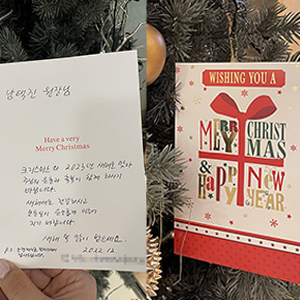 남택진 원장님
Have a very
Merry Christmas
크리스마스와 2023년 새해를 맞아
주님의 은총과 축복이 함께 하시기
바랍니다.
새해에도 건강하시고
모든일이 순조롭게 이루어
지기 바랍니다.
새해 복 많이 받으세요.
2022.12.
WISHING YOU A
MERRY CHRISTMAS
& HAPPY NEW
YEAR